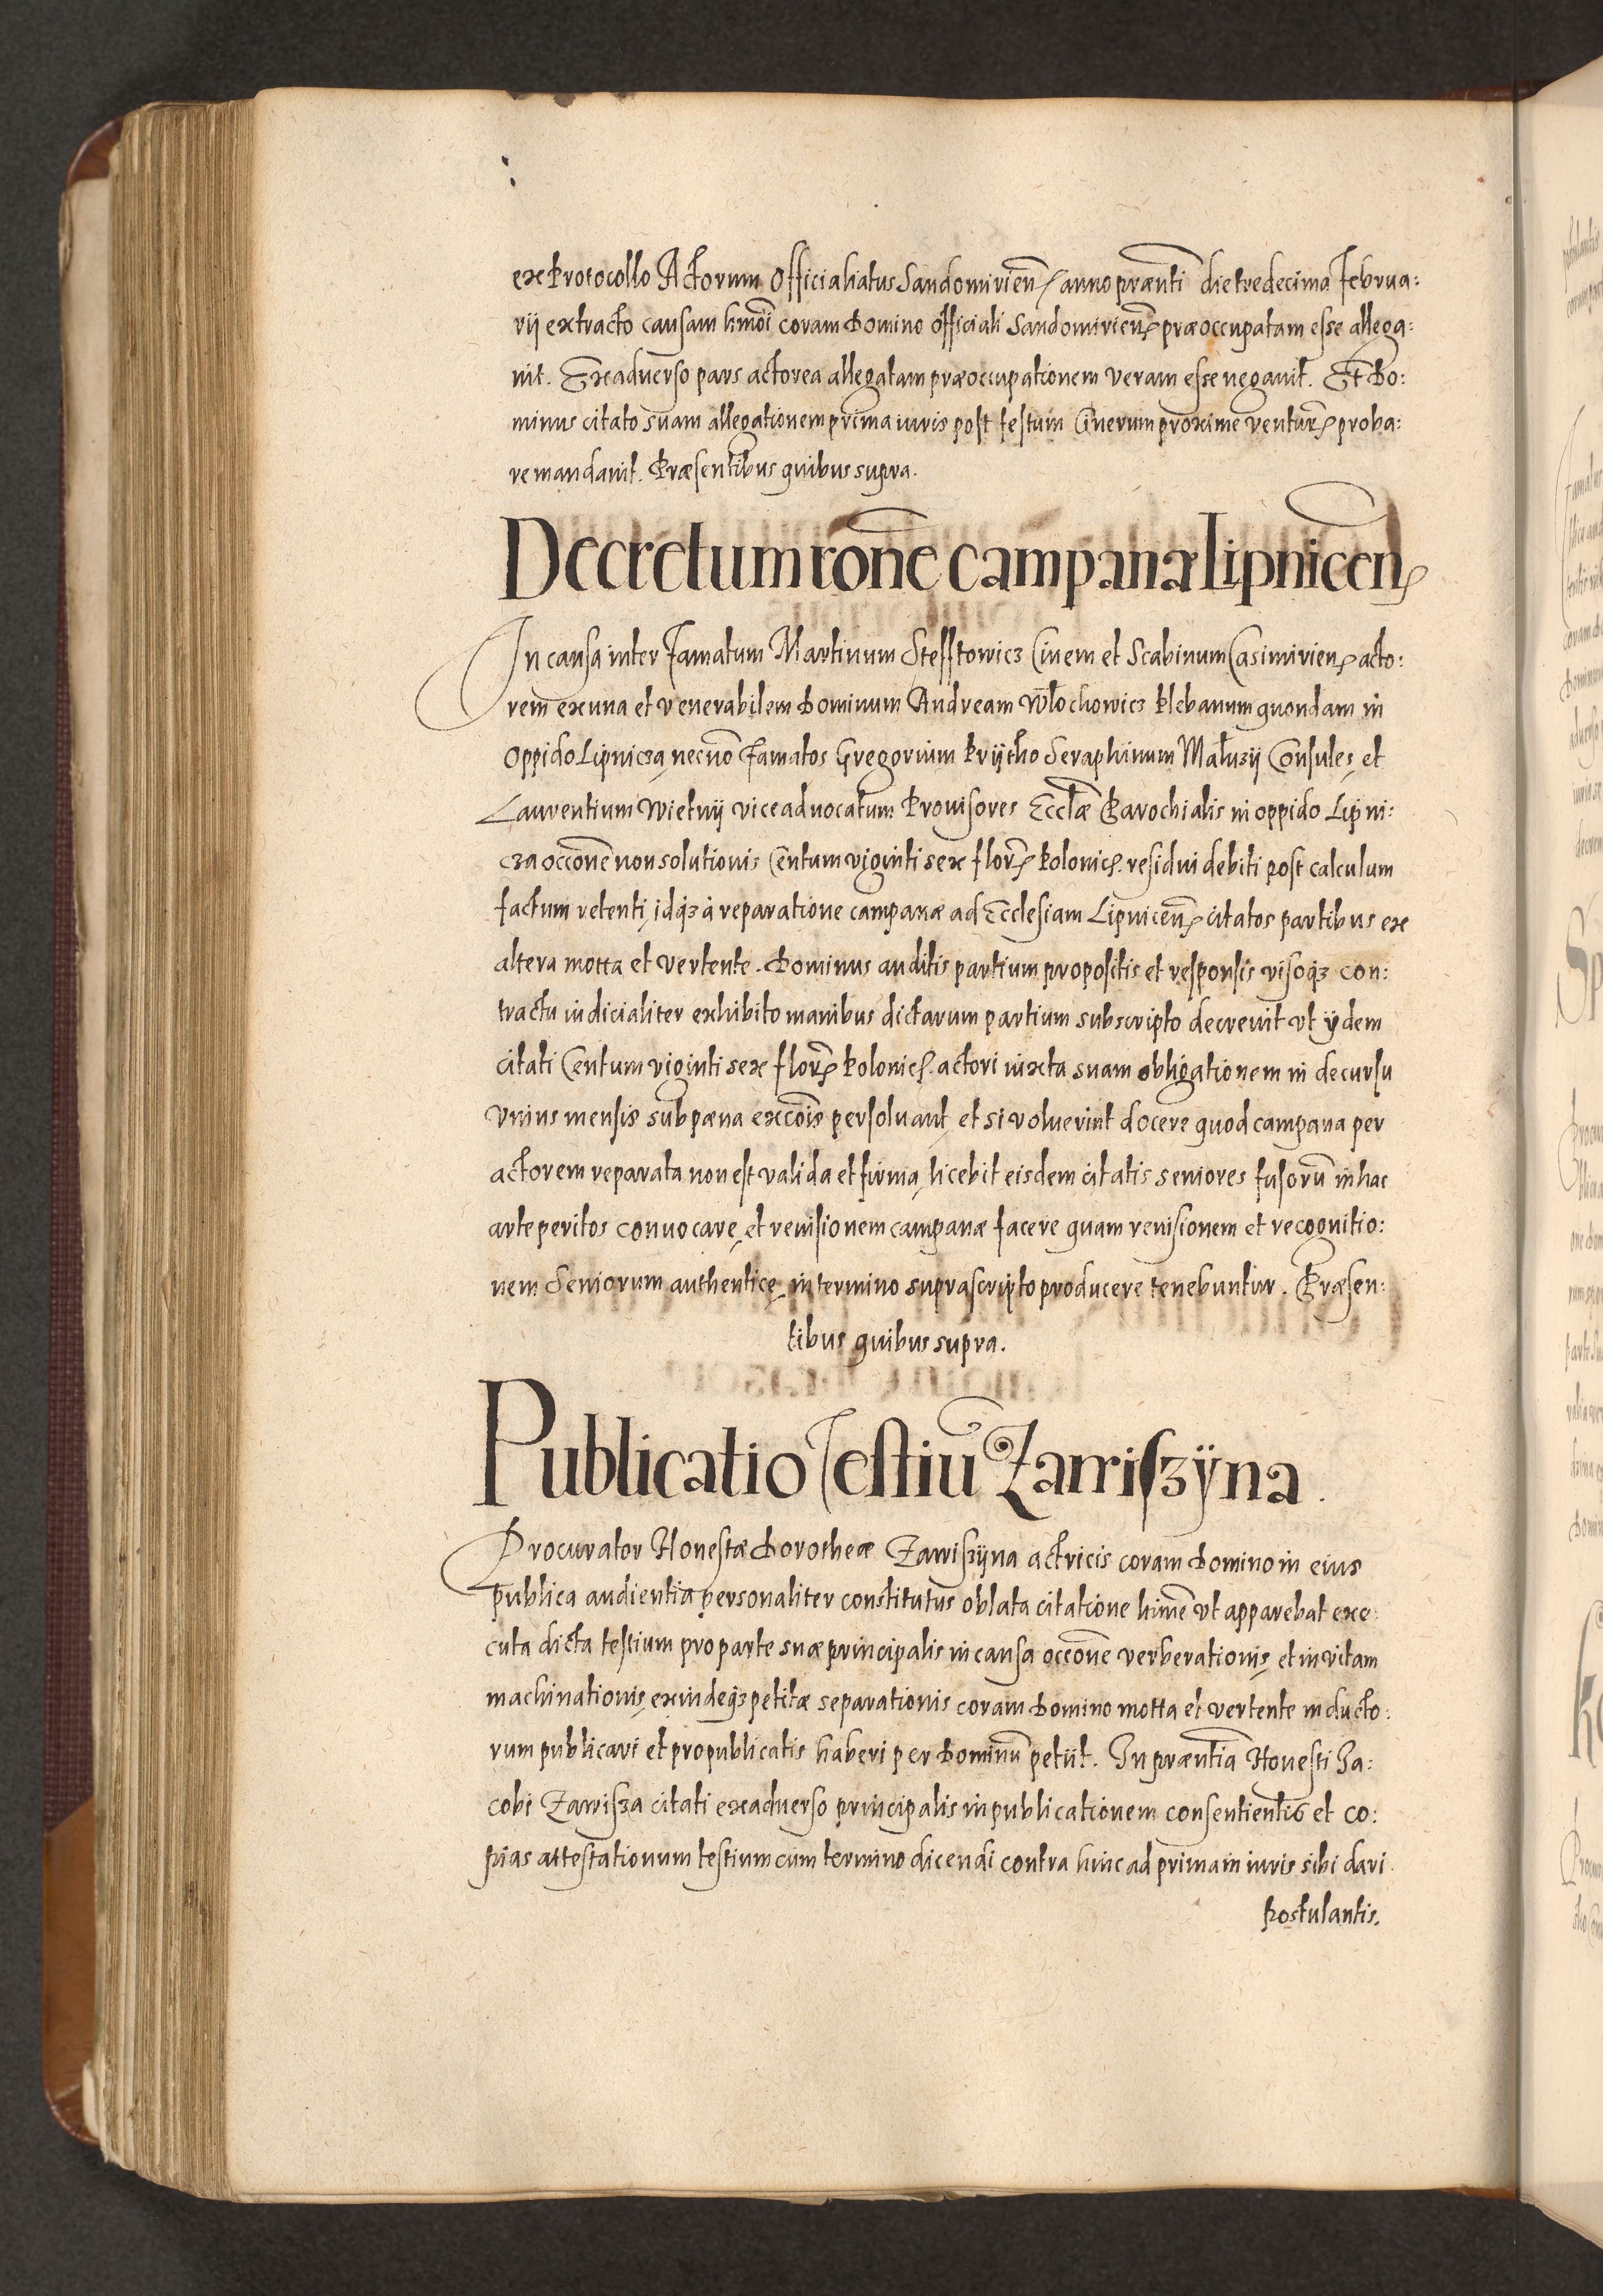 ex Protocollo Actorum Officialiatus Sandomirien̄ anno præn̄ti die tredecima Februa:
rij extracto causam hmōi coram Domino Officiali Sandomirien̄ præoccupatam esse allega:
uit. Ex aduerso pars actorea allegatam præoccupationem veram esse negauit. Et Do:
minus citato suam allegationem prima iuris post festum Cinerum proxime ventur̄ proba:
re mandauit. Præsentibus quibus supra.
Decretum rōne campanæ Lipnicen̄
In causa inter Famatum Martinum Stefftowicz Ciuem et Scabinum Casimirien̄ acto:
rem ex una et venerabilem Dominum Andream Włochowicz Plebanum quondam in
Oppido Lipnicza, necnō Famatos Gregorium Prÿtko Seraphinum Małuzij Consules, et
Laurentium Wietrij viceaduocatum Prouisores Eccłæ Parochialis in oppido Lipni:
cza occōne non solutionis Centum viginti sex flor̄ Polonic̄. residui debiti post calculum
factum retenti, idq3 à reparatione campanæ ad Ecclesiam Lipnicen̄ citatos partibus ex
altera motta et vertente. Dominus auditis partium propositis et responsis visoq3 con:
tractu iudicialiter exhibito manibus dictarum partium subscripto decreuit vt ÿdem
citati Centum viginti sex flor̄ Polonic̄. actori iuxta suam obligationem in decursu
vnius mensis sub pœna excōis persoluant, et si voluerint docere quod campana per
actorem reparata non est valida et firma, licebit eisdem citatis seniores fusorū in hac
arte peritos conuocare, et reuisionem campanæ facere quam reuisionem et recognitio:
nem Seniorum authenticę in termino suprascripto producere tenebuntur. Præsen:
tibus quibus supra.
Publicatio Testiū Zawiszÿna.
Procurator Honestæ Dorotheæ Zawiszÿna actricis coram Domino in eius
publica audientia personaliter constitutus oblata citatione hinc vt apparebat exe:
cuta dicta testium pro parte suæ principalis in causa occōne verberationis, et in vitam
machinationis, exindeq3 petitæ separationis coram Domino motta et vertente inducto:
rum publicari et pro publicatis haberi per Dominū petiit. In præn̄tia Honesti Ja:
cobi Zawisza citati ex aduerso principalis in publicationem consentientis et co:
pias attestationum testium cum termino dicendi contra hinc ad primam iuris sibi dari
Postulantis.